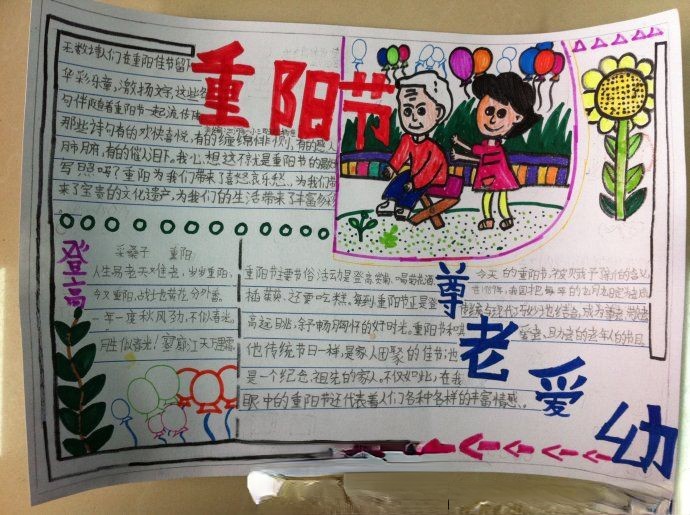 重阳节
无数诗人们在重阳佳节留下
华彩乐章,激扬文字,这些名
句伴随着重阳一起流传
那些诗句有的欢快喜悦,有的缠绵悱恻,有的感人
肺腑,有的催人泪下。我心想这不就是重阳节的最好
写照吗?重阳为我们带来了喜怒哀乐愁、为我们带
来了宝贵的文化遗产,为我们的生活带来了丰富多彩
登高
采桑子 重阳
人生易老天难老,岁岁重阳,
今又重阳,战地黄花分外香。
一年一度秋风劲,不似春光。
胜似春光,寥廓江天万里霜
重阳节主要节俗活动是登高赏菊、喝菊花酒
插茱萸、还要吃糕。每到重阳节正是登
高远眺,舒畅胸怀的好时光。重阳节和
他传统节日一样,是家人团聚的佳节;也
是一个纪念祖先的家人,不仅如此,在我
眼中的重阳节还代表着人们各种各样的丰富情感。
尊老爱幼
今天的重阳节,被赋予新的含义
在1989年,我国把每年的九月九日定为
传统与现代巧妙地结合,成为尊老敬老
爱老、
老年人的节日